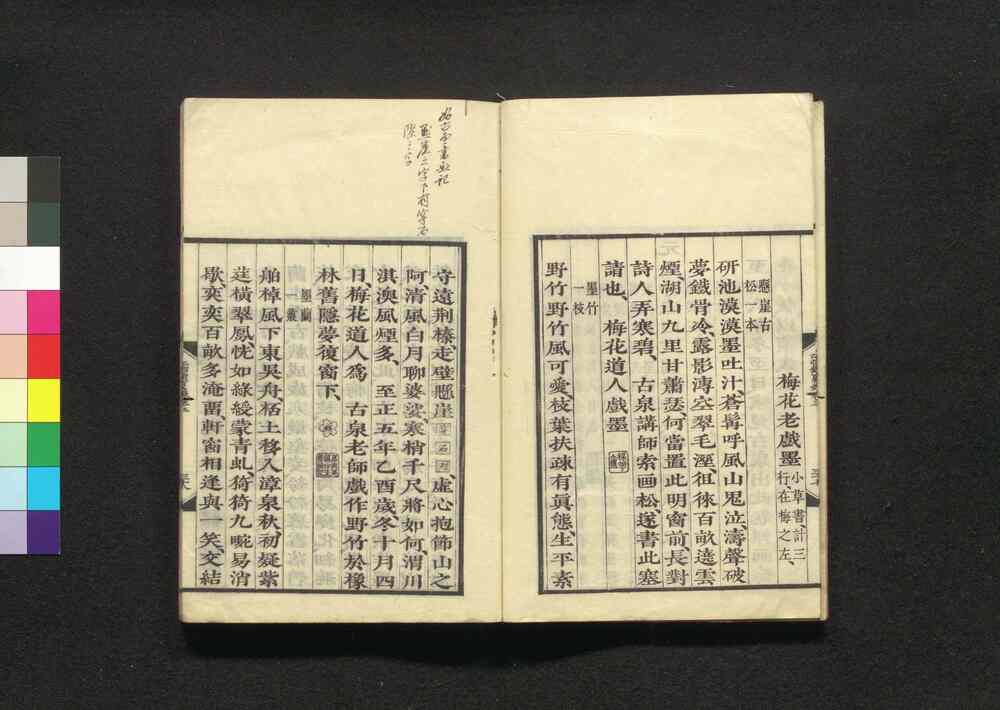 梅花老戲墨 小草書、計三行、在梅之左、
懸崖古松一本
研池漠漠墨吐汁、蒼髯呼風山鬼泣、濤聲破
夢鐵骨冷、露影漙空翠毛溼、徂徠百畝遶雲
煙、湖山九里甘蕭瑟、何當置此明窗前、長對
詩人弄寒碧、古泉講師索画松、遂書此塞
請也、梅花道人戲墨
墨竹一枝
野竹野竹風可愛、枝葉扶疎有眞態、生平素
守遠荆榛、走壁懸崖 虛心抱節山之
阿、清風白月聊婆娑、寒梢千尺將如何、渭川
淇澳風煙多、至正五年乙酉歲、冬十月四
日、梅花道人爲、古泉老師戲作野竹於橡
林舊隱夢復窗下、
墨蘭一叢
舶棹風下東吳舟、梧土移入漳泉秋、初疑紫
莛橫翠鳳、恍如綠綬蒙青虬、猗猗九畹易消
歇、奕奕百畝多淹畱、軒窗相逢與一笑、交結
二字下有